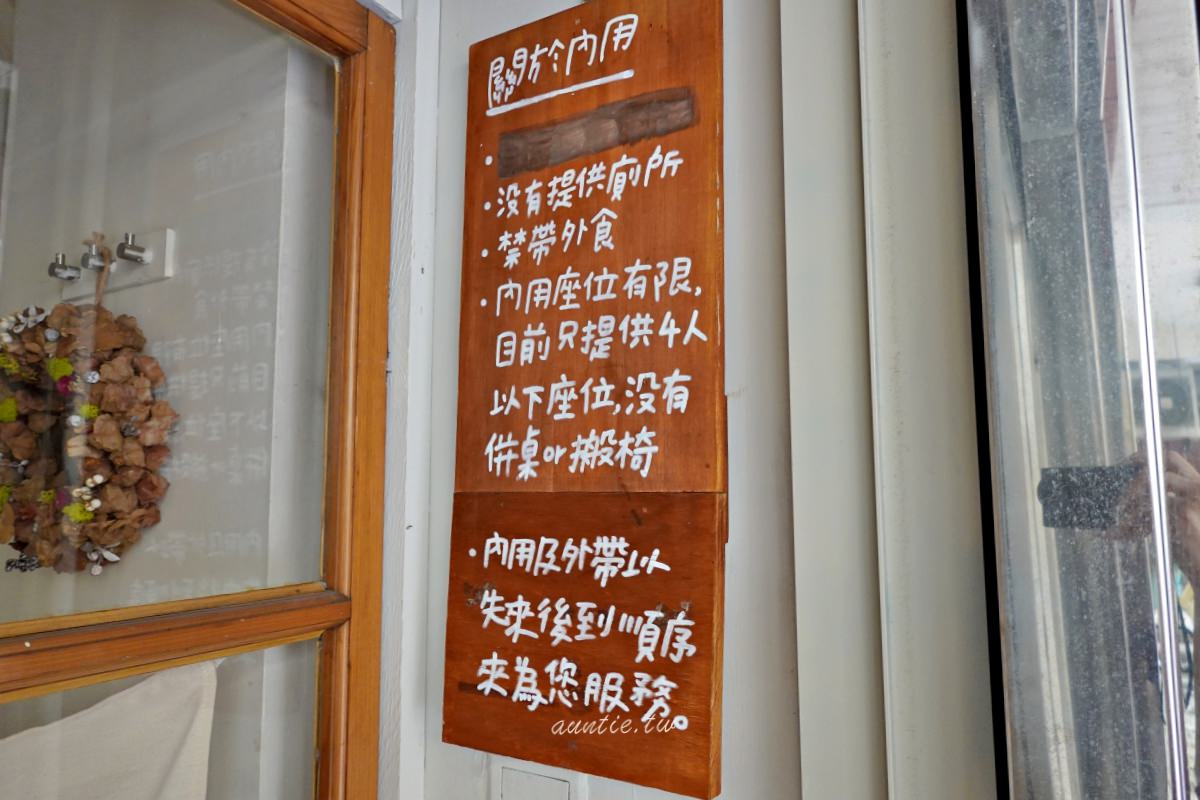 關於內用
·
·没有提供廁所
·禁帶外食
·內用座位有限,
目前只提供4人
以下座位,没有
併桌or搬椅
·內用及外帶以
先來後到順序
來為您服務。
auntie.tw